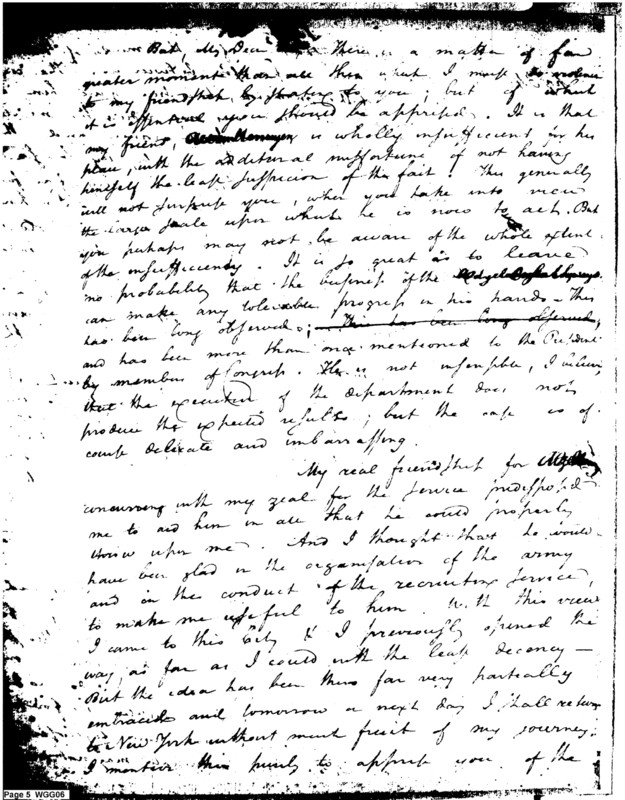 But, My Dear Sir, There is a matter of far
greater moment than all this which I must do violence
to my friendship by stating to you; but of which
it is essential you should be apprised. It is that
my friend, is wholly insufficient for his
place, with the additional misfortune of not having
himself the least suspicion of the fact. This generally
will not surprise you, when you take into view
the larger scale upon which he is now to act. But
you perhaps may not be aware of the whole extent
of the insufficiency. It is so great as to leave
no probability that the business of the
can make any tolerable progress in his hands – This
has been long observed; This has been long observed;
and has been more than once mentioned to the President
by members of Congress. He is not insensible, I believe,
that the execution of the department does not
produce the expected results; but the case is of
course delicate and imbarrassing.
My real friendship for
concurring with my zeal for the service predisposed
me to aid him in all that he could properly
throw upon me. And I thought that he would
have been glad in the organisation of the army
and in the conduct of the recruiting service,
to make me useful to him. With this view
I came to this City & I previously opened the
way, as far as I could with the least decency —
But the idea has been thus far very partially
embraced and tomorrow or next day I shall return
to New York without much fruit of my journey.
I mention this purely to apprise you of the
Page 5 WGG06